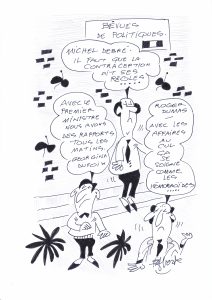 BÉVUES
DE POLITIQUES.
MICHEL DEBRÉ.
IL FAUT QUE LA
CONTRACEPTION
AIT SES
REGLES...
AVEC LE
PREMIER
MINISTRE
NOUS AVONS
DES RAPPORTS
TOUS LES
MATINS.
GEORGINA
DUFOIX
ROGER
DUMAS
AVEC LES
AFFAIRES
DE
CUL
SE
SOIGNE
COMME
LES
HÉMORROÏDES